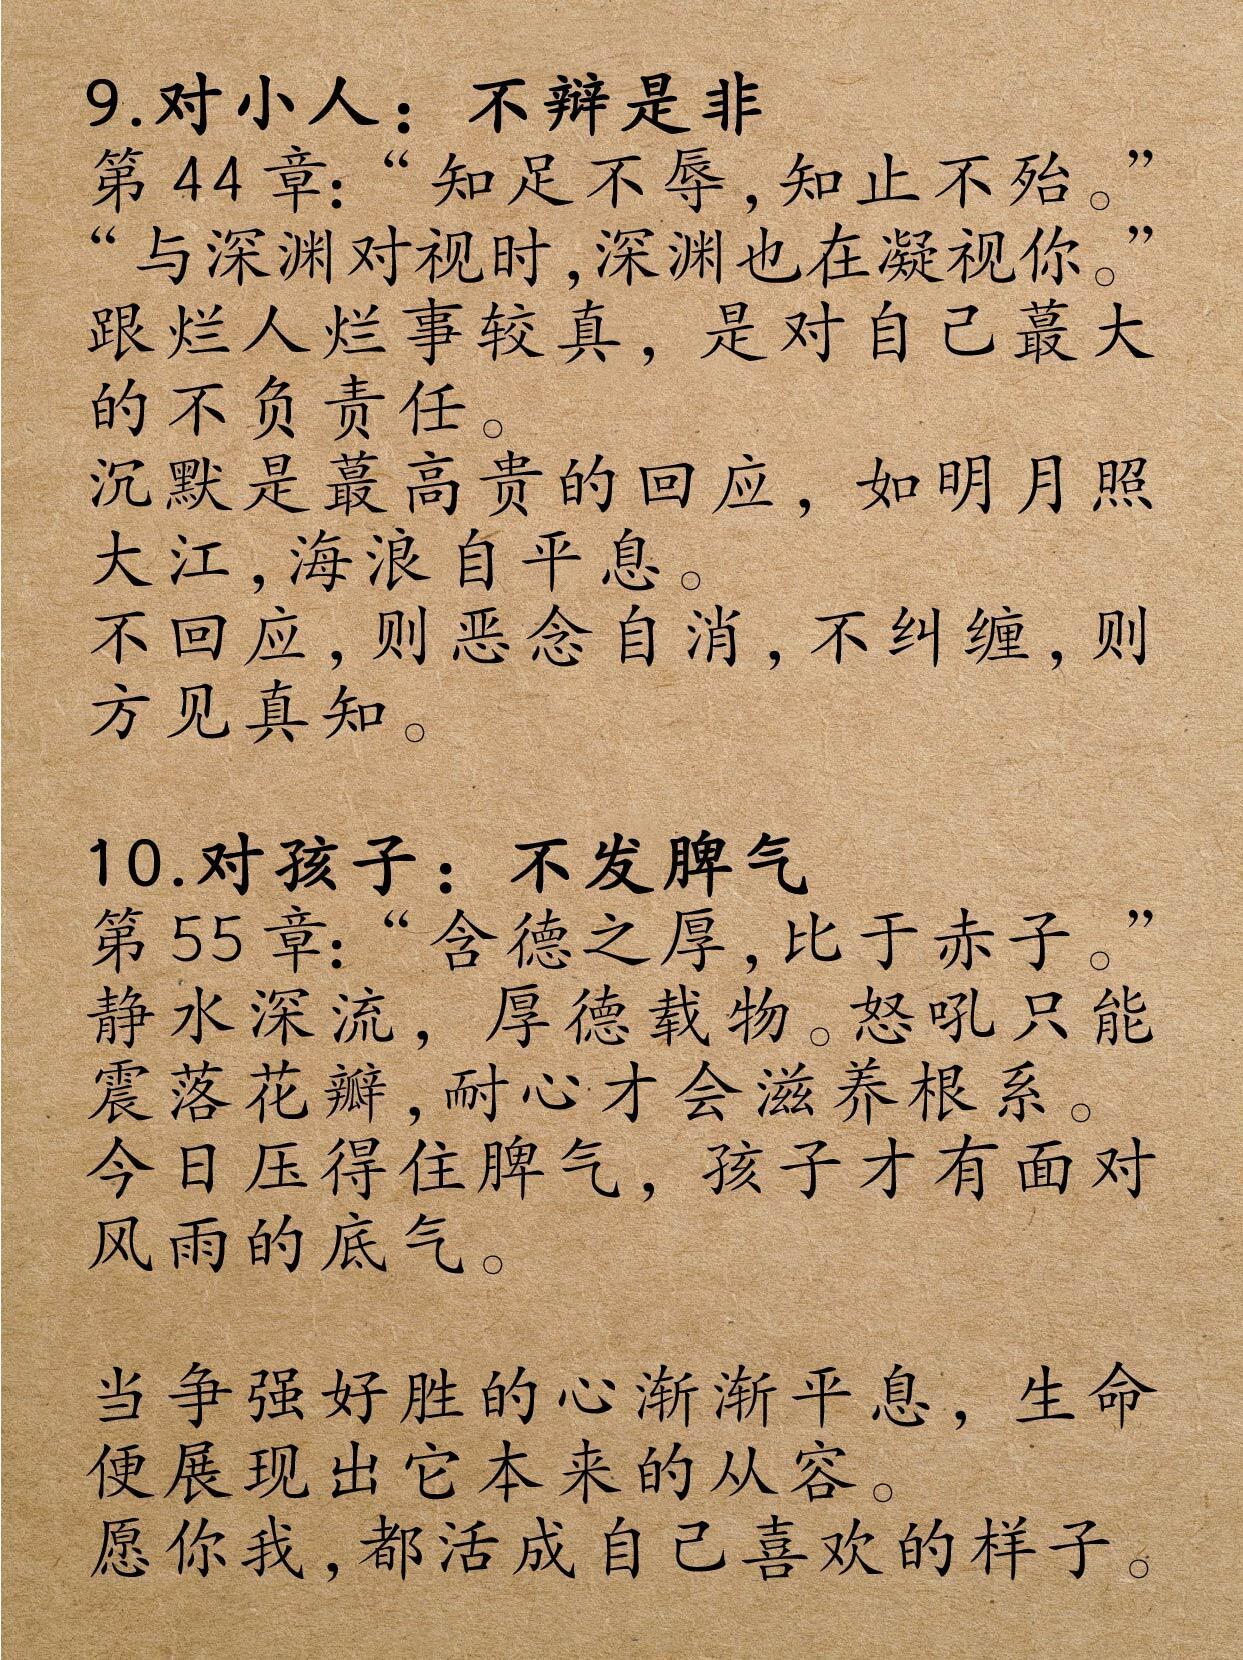 9.对小人：不辩是非
第44章：“知足不辱，知止不殆。”
“与深渊对视时，深渊也在凝视你。”
跟烂人烂事较真，是对自己蕞大
的不负责任。
沉默是蕞高贵的回应，如明月照
大江，海浪自平息。
不回应，则恶念自消，不纠缠，则
方见真知。
10.对孩子：不发脾气
第55章：“含德之厚，比于赤子。”
静水深流，厚德载物。怒吼只能
震落花瓣，耐心才会滋养根系。
今日压得住脾气，孩子才有面对
风雨的底气。
当争强好胜的心渐渐平息，生命
便展现出它本来的从容。
愿你我，都活成自己喜欢的样子。